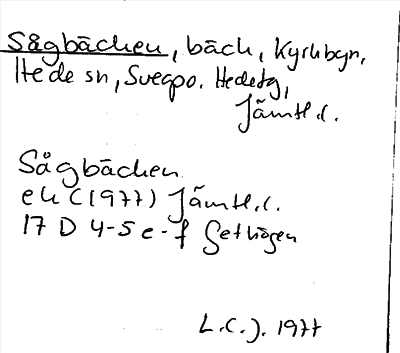 Sågbäcken, bäck, Kyrkbyn,
Hede sn, Svegpo. Hedetg,
Jämtl.l.
Sågbäcken
ek (1977) Jämtl.l.
17 D 4-5 e-f Gethågen
L.C.J. 1977